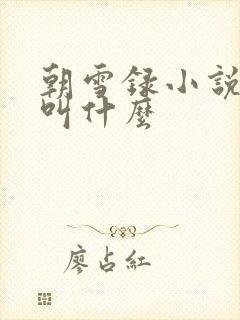 朝雪録小説
叫什麼
廖占紅